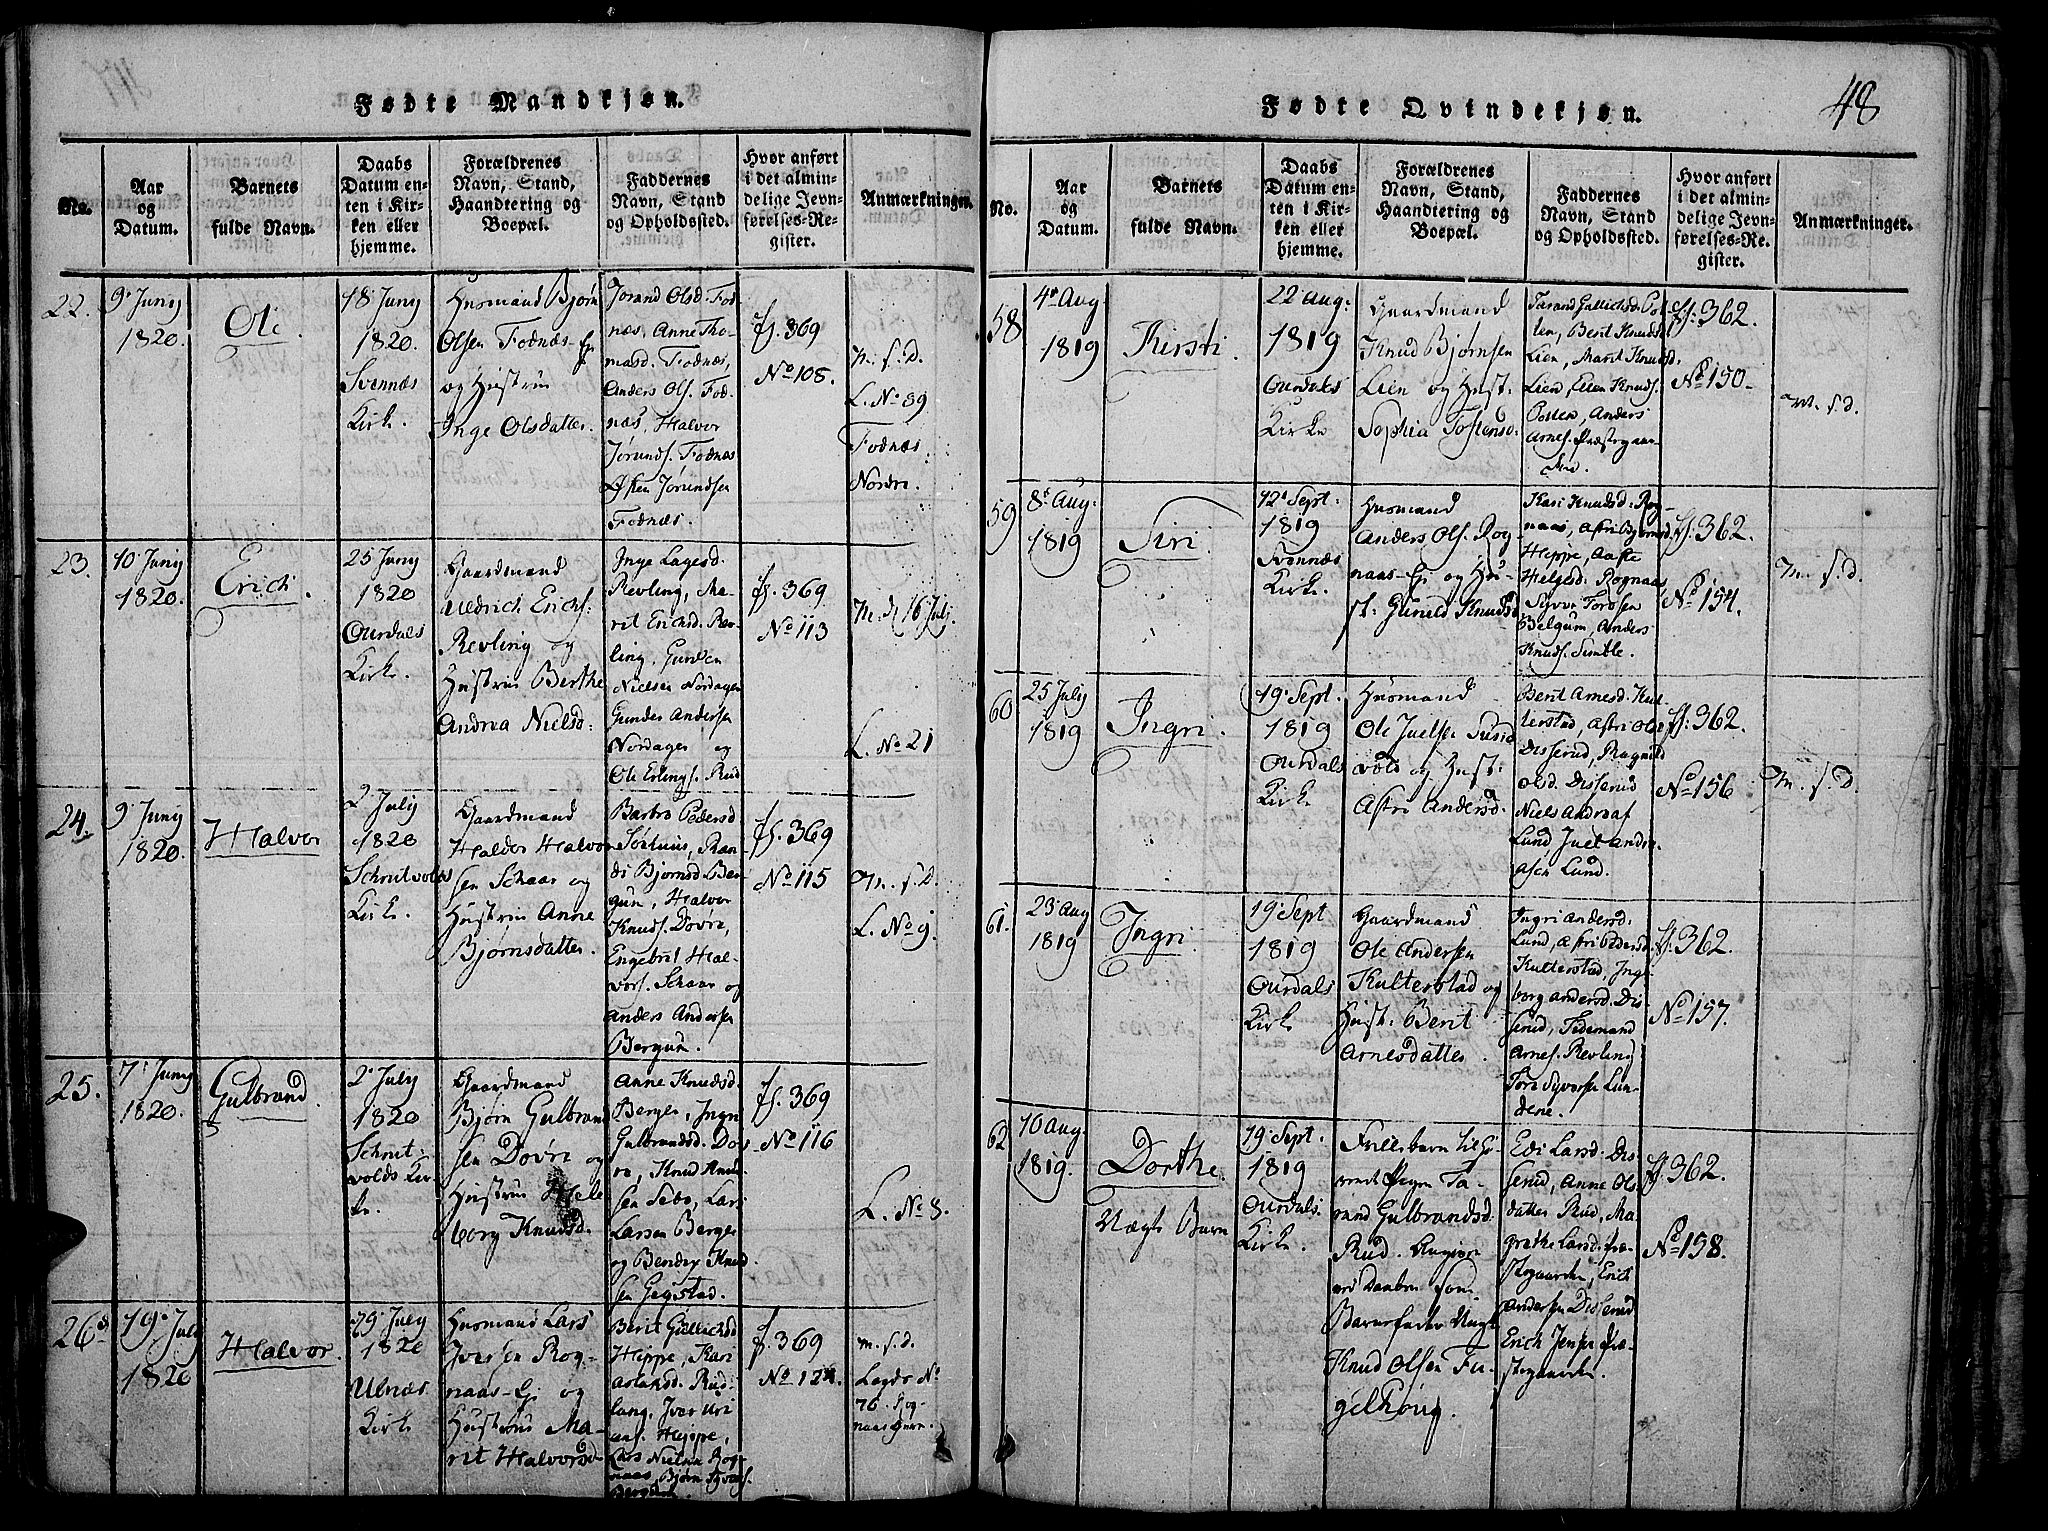 Fødte Mandkjøn.
No.
Aar
og
Datum.
Barnets
fulde Navn.
Daabs
Datum en-
ten i Kir-
ken eller
hjemme.
Forældrenes
Navn, Stand,
Haandtering og
Boepæl.
Faddernes
Navn, Stand
og Opholdssted.
Hvor anført
i det almin-
delige Jevn-
førelses-Re-
gister.
Anmærkninger.
22.
9. Juny
1820.
Ole
18 Juny
1820.
Svennæs
Kirke.
Husmand Bjørn
Olsen Fodnæs-Ej
og Hustrue
Inge Olsdatter.
Jorand Olsd. Fod-
næs, Anne Tho-
masd. Fodnæs,
Anders Ols. Fod-
næs, Halvor
Jørunds. Fodnæs
Jørundsen
Fodnæs.
fl. 369
No 108.
m. f. D.
L. No 89
Fodnæs
Nordre
23.
10 Juny
1820.
Erich.
25 Juny
1820
Ourdals
Kirke.
Gaardmand
Uldrich Erichs:
Revling og
Hustrue Berthe
Andrea Nielsd:
Inge Lagesd.
Revling, Ma-
rit Erichsd. Rev-
ling, Gunder
Nielsen Nordagen
Gunder Andersen
Nordagen og
Ole Erlings. Rud
fl. 369
No 113
m. d. 16 July.
L. No 21
24.
9. Juny
1820.
Halvor
2 July
1820
Schrutvolds
Kirke.
Gaardmand
Haldor Halvor-
sen Schaar og
Hustrue Anne
Bjørnsdatter.
Barbro Pedersd
Ran-
di Bjørnsd. Ber-
gun, Halvor
Knuds. Dovre,
Engebret Hal-
vors. Schaar og
Anders Andersen
Bergun.
fl. 369
No 115
m. f. D.
L. No 9.
25.
7. Juny
1820.
Gulbrand.
2. July
1820
Schrut-
volds Kir-
ke.
Gaardmand
Bjørn Gulbrand-
sen Dovre og
Hustrue Hel-
borg Knudsd.
Anne Knudsd.
Berge, Ingri
Gulbrandsd. Dov-
re, Knud Knud-
sen Sebo, Lars
Larsen Berge
og Bendix Knud-
sen Gigstad.
fl. 369
No 116
L. No 8.
26
19. July
1820
Halvor.
29. July
1820
Ulnæs
Kirke
Husmand Lars
Iversen Rog-
naas-Ej og
Hustrue Ma-
rit Halvorsd.
Berit Gullichsd
Heppe, Kari
Aslaksd. Rud-
lang, Ivar Uri
aas. Heppe,
Lars Nielsen Rog-
naas, Bjørn Syvers.
fl. 369
No 122.
m. f. D.
Lagds No
76. Rog-
naas
Fødte Qvindekjøn.
48
No.
Aar
og
Datum.
Barnets
fulde Navn.
Daabs
Datum en-
ten i Kir-
ken eller
hjemme.
Forældrenes
Navn, Stand,
Haandtering og
Boepæl.
Faddernes
Navn, Stand
og Opholdssted.
Hvor anført
i det almin-
delige Jevn-
førelses-Re-
gister.
Anmærkninger.
58
4de Aug
1819
Kirsti.
22 Aug:
1819
Ourdals
Kirke
Gaardmand
Knud Bjørnsen
Lien og Hust.
Sophia Tostensd.
Tarand Gullichsd. Pos-
ten, Berit Knudsd
Lien, Marit Knudsd.
Lien, Ellen Knuds.
Posten, Anders
Arnes. Præstegaar-
den.
fl. 362.
No 150.
m. f. d.
59
8de Aug:
1819
Siri.
12. Sept:
1819
Svennæs
Kirke.
Husmand
Anders Ols. Rog-
naas-Ej og Hu-
st: Gunild Knudsd
Kari Knudsd. Rog-
naas, Astri
Heppe, Aaste
Helgesd. Rognaas,
Syver Tordsen
Belgum, Anders
Knuds. Tomble.
fl. 362.
No 154.
m. f. d.
60
25 July
1819
Ingri.
19. Sept.
1819
Ourdals
Kirke
Husmand
Ole Juelsen
vold og Hust:
Astri Andersd.
Berit Arnesd. Kul-
terstad, Astri Olsd
Disserud, Ragnild
Olsd. Disserud
Niels
Lund, Juel Andre-
asen Lund.
fl: 362.
No 156
m. f. D.
61.
23 Aug
1819
Ingri.
19. Sept
1819
Ourdals
Kirke
Gaardmand
Ole Andersen
Kulterstad og
Hust: Berit
Arnesdatter.
Ingri Andersd.
Lund, Astri Pedersd.
Kulterstad, Inge-
borg Andersd. Dis-
serud, Tidemand
Arnes. Revling
Tore Syversen Lun-
dene.
fl. 362
No 157.
62
10 Aug.
1819.
Dorthe
Uægte Barn
19. Sept:
1819
Ourdals
Kirke.
Frillebarn til Gi-
vende Pigen Ta-
rand Gulbrandsd.
Rud. Angiven
ved Daaben som
Barnefader Ungk.
Knud Olsen Fu-
gelhoug.
Edi Larsd. Dis-
serud, Anne Ols-
datter Rud, Ma-
grethe Larsd. Præ-
stegaarden, Erich
Andersen Disserud
Erich Jensen Præ-
stegaarden.
fl. 362.
No 158.